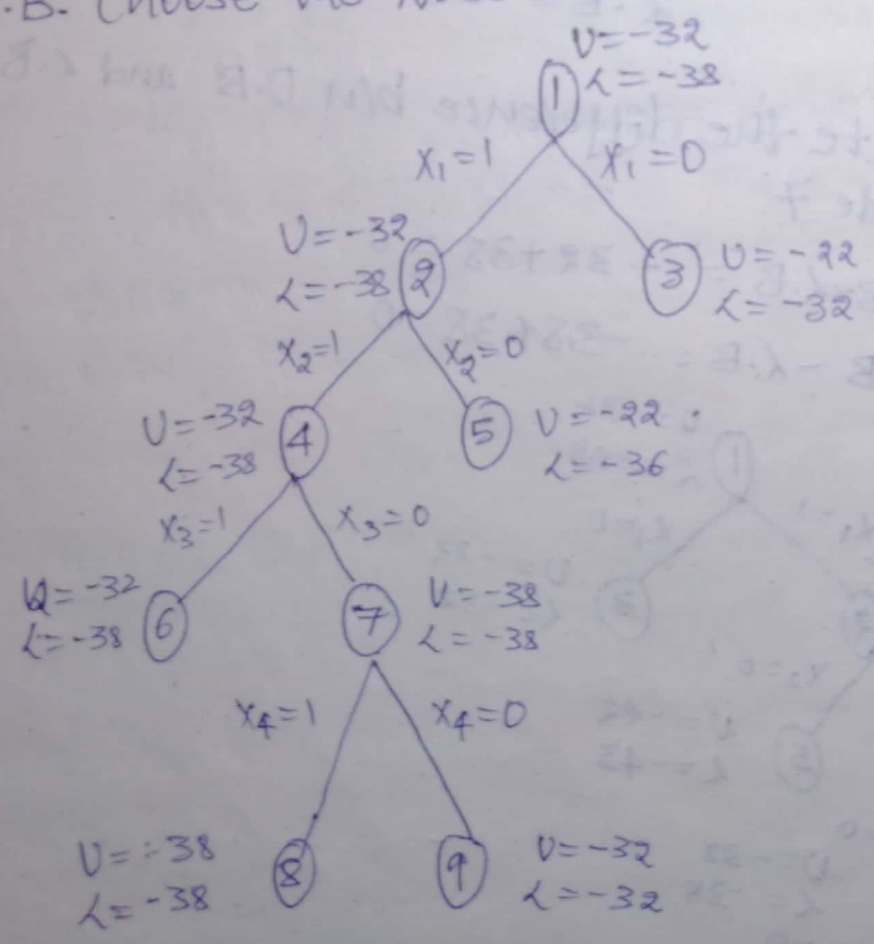 .B. Choose the
U=-32
L=-38
1
x1=1
x1=0
U=-32
L=-38
2
3
U=-22
L=-32
x2=1
x2=0
U=-32
L=-38
4
5
U=-22
L=-36
x3=1
x3=0
U=-32
L=-38
6
7
U=-38
L=-38
x4=1
x4=0
U=-38
L=-38
8
9
U=-32
L=-32